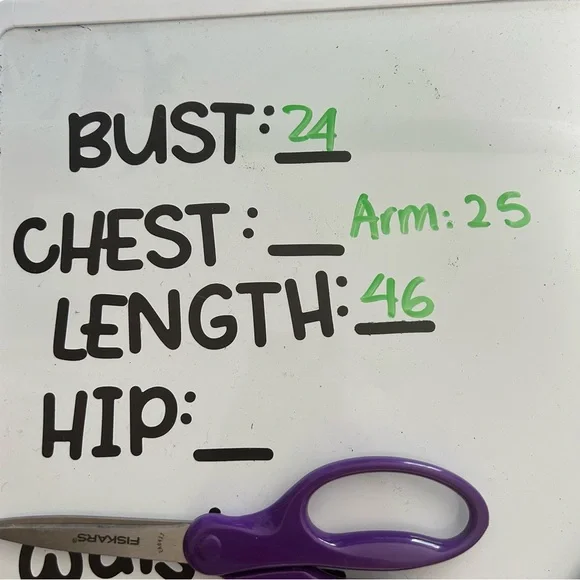 BUST: 24
CHEST: __ Arm: 25
LENGTH: 46
HIP: __
FISKARS®